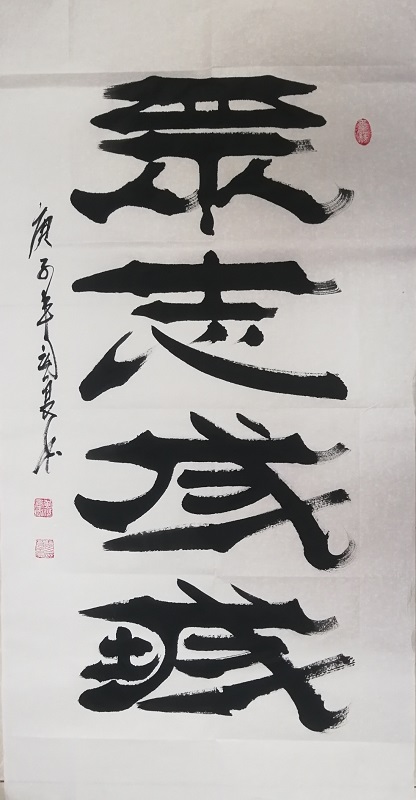 眾志成城
庚子年